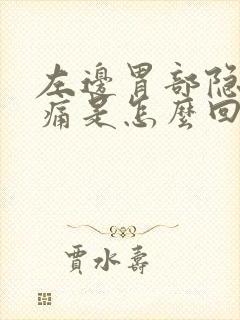 左邊胃部隐
痛是怎麼回
賈水壽